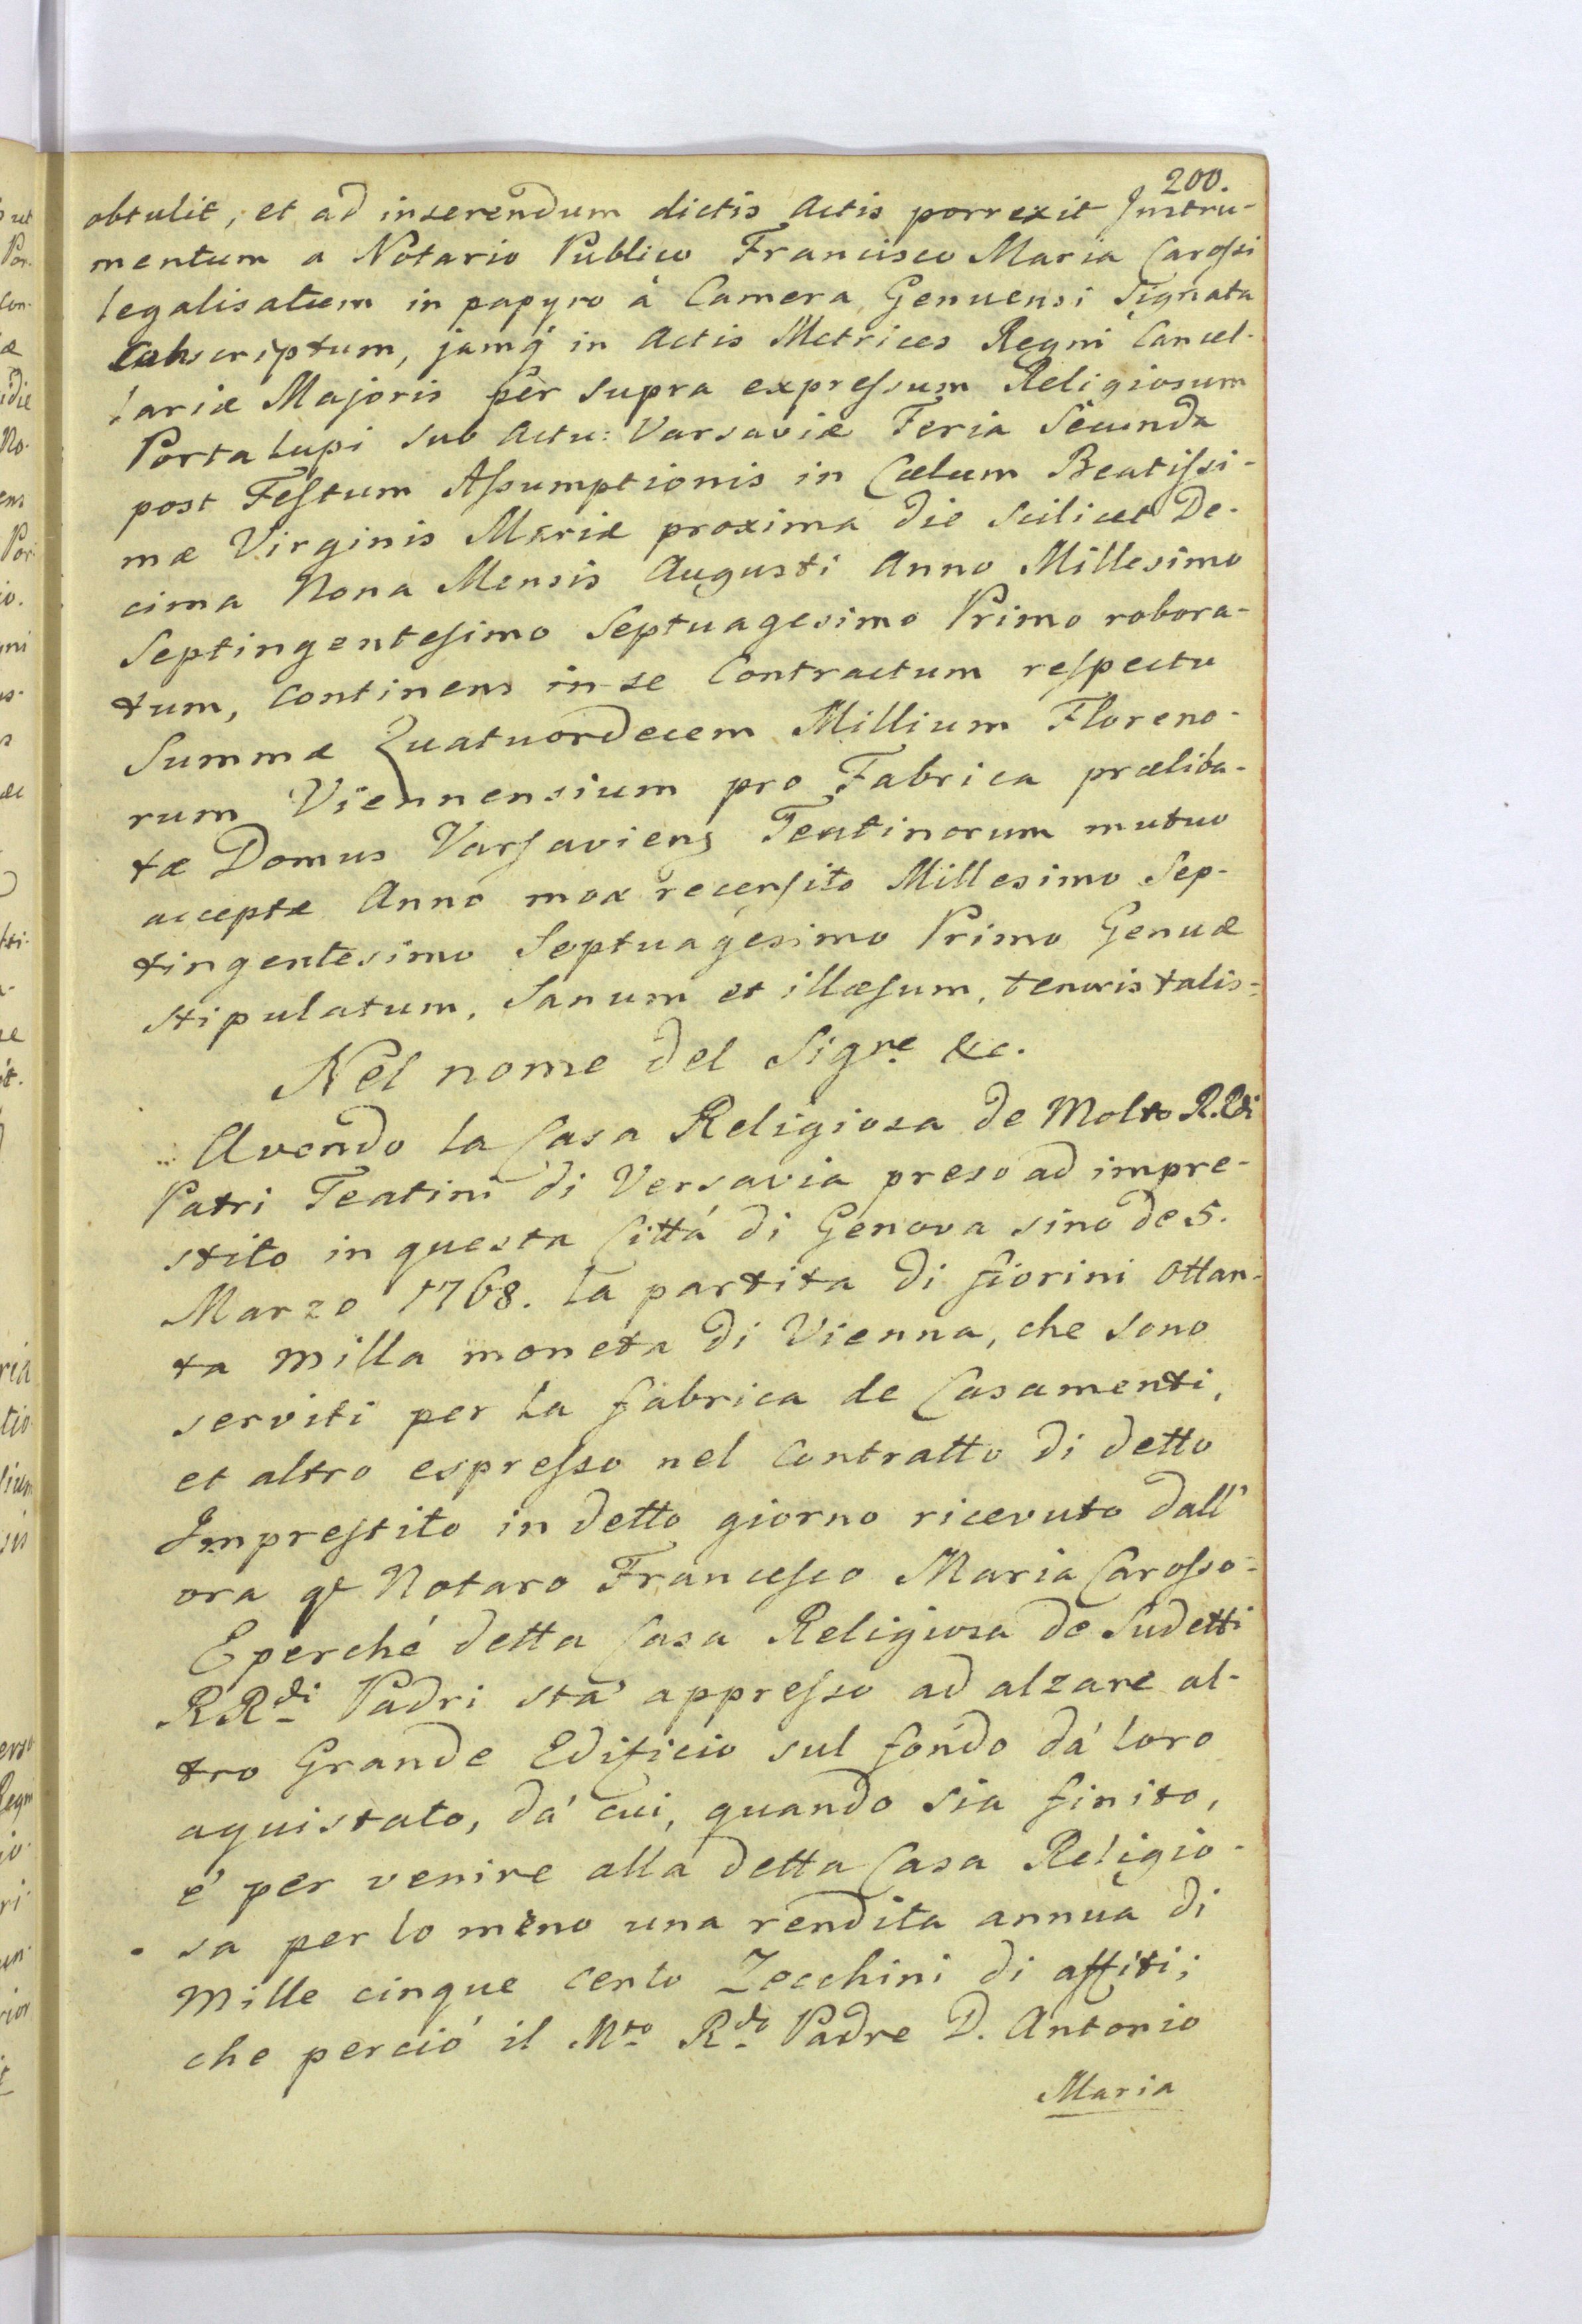 200.
obtulit, et ad inserendum dictis Actis porrexit Instru-
mentum a Notario Publico Francisco Maria Carossi
legalisatum in papyro à Camera Genuensi Signata
Conscriptum, jamq in Actis Metrices Regni Cancel-
lariæ Majoris per supra expressum Religiosum
Portalupi sub Actu: Varsaviæ Feria Secunda
post Festum Assumptionis in Cœlum Beatissi-
mæ Virginis Mariæ proxima die Scilicet De-
cima Nona Mensis Augusti Anno Millesimo
Septingentesimo Septuagesimo Primo robora-
tum, Continens in se Contractum respectu
Summæ Quatuordecem Millium Floreno-
rum Viennensium pro Fabrica præliba-
tæ Domus Varsaviens Teatinorum mutuo
acceptæ Anno mox recensito Millesimo Sep-
tingentesimo Septuagesimo Primo Genuæ
stipulatum, Sanum et illæsum, tenoris talis:
Nel nome del Sigre &c.
Avendo la Casa Religiosa de Molto R.Rdi
Patri Teatini di Versavia preso ad impre-
stito in questa Cittá di Genova sino de 5.
Marzo 1768. la partita di fiorini Ottan-
ta milla moneta di Vienna, che sono
serviti per la fabrica de Casamenti,
et altro espresso nel Contratto di detto
Imprestito in detto giorno ricevuto dall'
ora qt Notaro Francesco Maria Carosso-
E perché detta Casa Religiosa de Sudetti
RRdi Padri stá appresso ad alzare al-
tro Grande Edificio sul fondo dá loro
aquistato, dá cui, quando sia finito,
é per venire alla detta Casa Religio-
sa per lo meno una rendita annua di
Mille cinque cento Zecchini di affiti;
che perció il Mto Rdo Padre D. Antonio
Maria